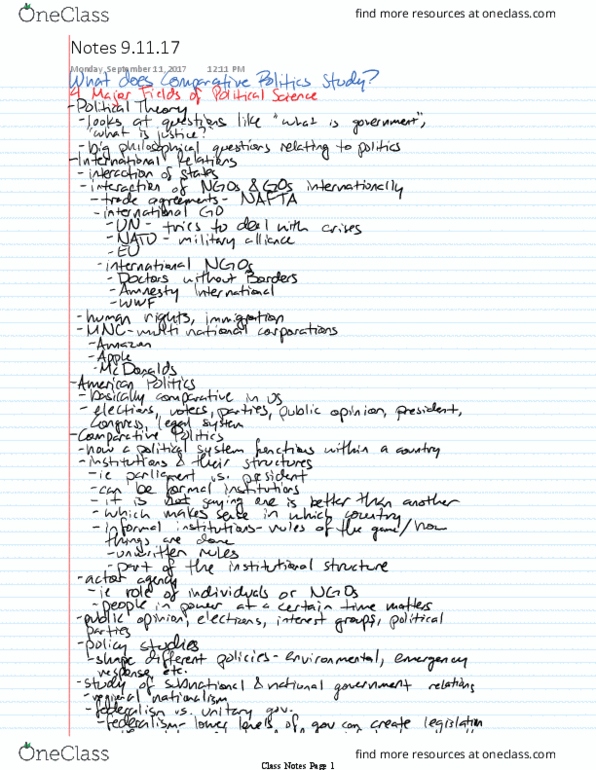 OneClass
find more resources at oneclass.com
Notes 9.11.17
Monday, September 11, 2017 12:11 PM
What does Comparative Politics Study?
4 Major Fields of Political Science
-Political Theory
-looks at questions like "what is government",
"what is justice?"
-big philosophical questions relating to politics
-International Relations
-interaction of states
-interaction of NGOs & GOs internationally
-trade agreements- NAFTA
-international GO
-UN- tries to deal with crises
-NATO- military alliance
-EU
-international NGOs
-Doctors without Borders
-Amnesty International
-WWF
-human rights, immigration
-MNC-multi national corporations
-Amazon
-Apple
-McDonalds
-American Politics
-basically comparative in US
-elections, voters, parties, public opinion, president,
Congress, legal system
-Comparative Politics
-how a political system functions within a country
-institutions & their structures
-ie parliament vs. president
-can be formal institutions
-it is not saying one is better than another
-which makes sense in which country
-informal institutions- rules of the game/how
things are done
-unwritten rules
-part of the institutional structure
-actor agency
-ie role of individuals or NGOs
-people in power at a certain time matters
-public opinion, elections, interest groups, political
parties
-policy studies
-shape different policies- environmental, emergency
response, etc.
-study of subnational & national government relations
-regional nationalism
-federalism vs. unitary gov.
-federalism- lower levels of gov can create legislation
OneClass
Class Notes Page 1
find more resources at oneclass.com